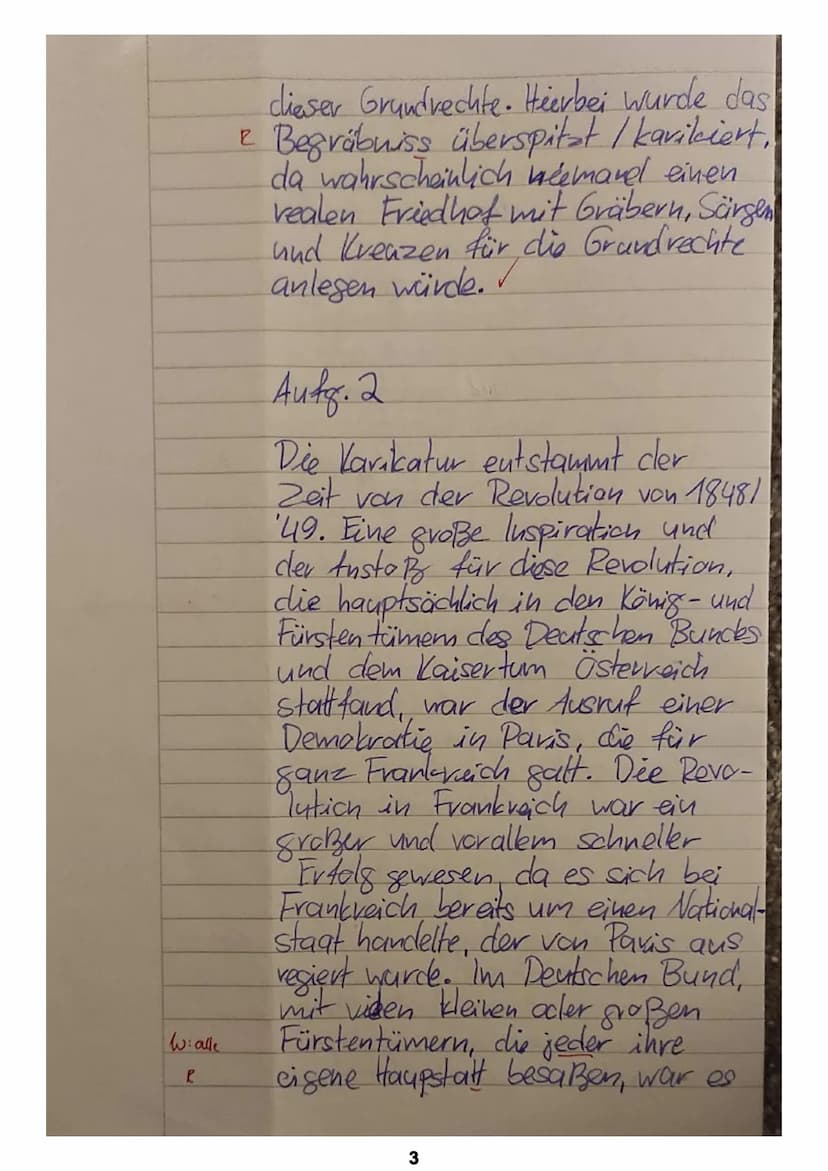 dieser Grundrechte. Hierbei wurde das
R Begräbniss überspitzt / karikiert,
da wahrscheinlich niemand einen
realen Friedhof mit Gräbern, Särgen
und Kreuzen für die Grundrechte
anlegen würde. ✓
Aufg. 2
Die Karikatur entstammt der
Zeit von der Revolution von 1848/
'49. Eine große Inspiration und
der Anstoß für diese Revolution,
die hauptsächlich in den König- und
Fürstentümern des Deutschen Bundes
und dem Kaisertum Österreich
stattfand, war der Ausruf einer
Demokratie in Paris, die für
ganz Frankreich galt. Die Revo-
lution in Frankreich war ein
großer und vorallem schneller
Erfolg gewesen, da es sich bei
Frankreich bereits um einen National-
staat handelte, der von Paris aus
regiert wurde. Im Deutschen Bund,
mit vielen kleinen oder großen
W: alle Fürstentümern, die jeder ihre
R eigene Haupstatt besaßen, war es
3